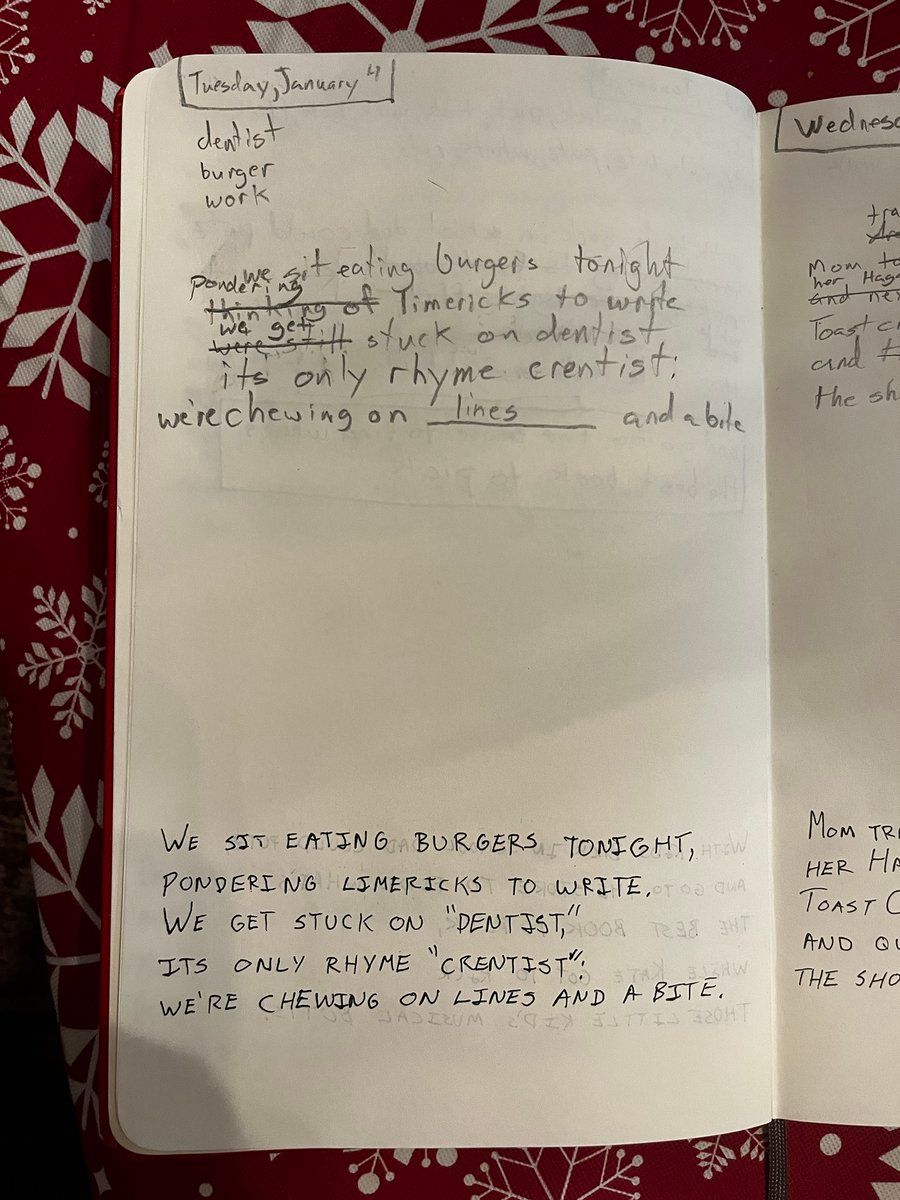 Tuesday, January 4
dentist
burger
work
we sit eating burgers tonight
Pondering
thinking of limericks to write
we get
were still stuck on dentist
its only rhyme crentist:
we're chewing on lines and a bite
WE SIT EATING BURGERS TONIGHT,
PONDERING LIMERICKS TO WRITE.
WE GET STUCK ON "DENTIST,"
ITS ONLY RHYME "CRENTIST":
WE'RE CHEWING ON LINES AND A BITE.
Mom
her
and
Toast
and
the
MOM
HER
TOAST
AND
THE